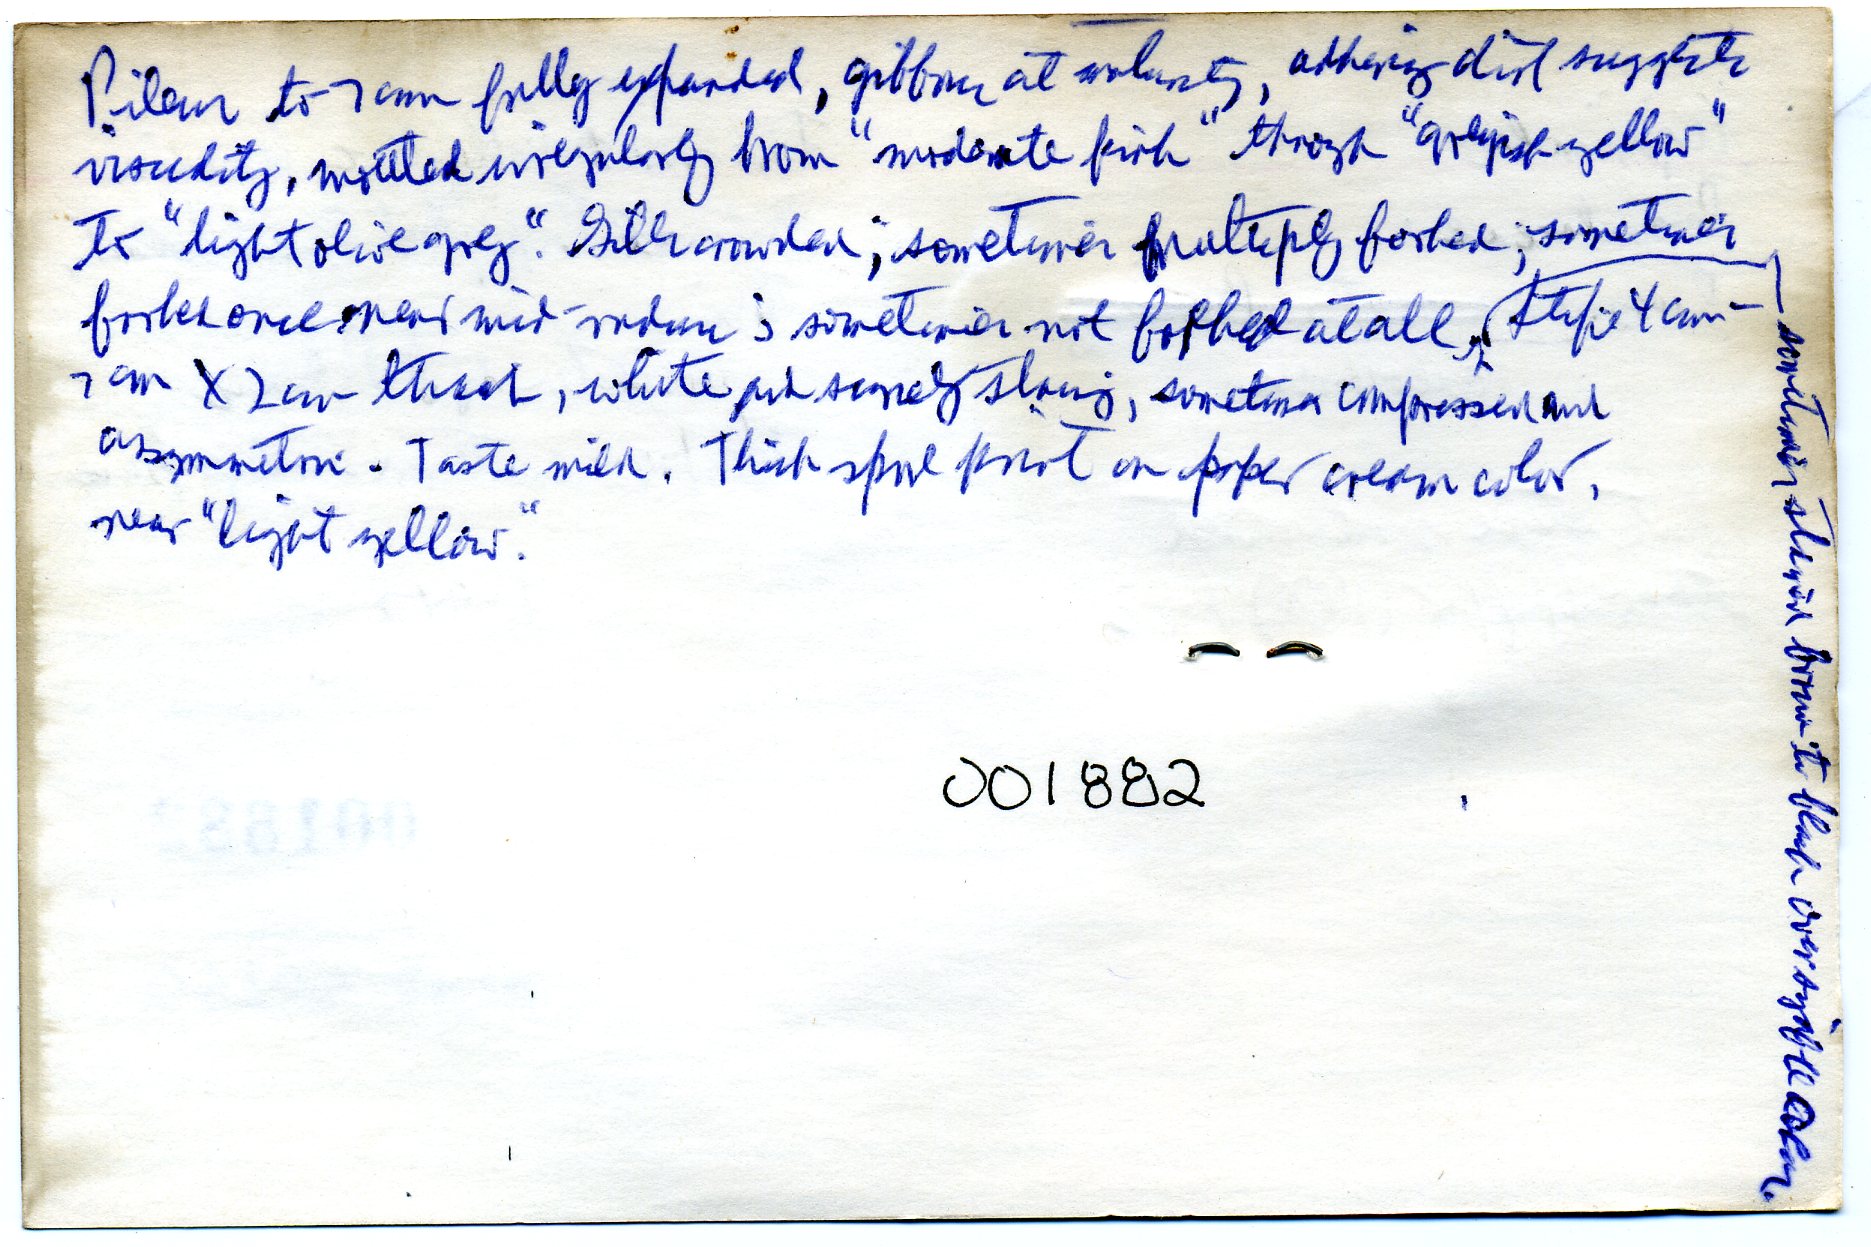 Pileus to 7 cm fully expanded, gibbous at maturity, adhering dirt suggests
viscidity, mottled irregularly from "moderate pink" through "greyish yellow"
to "light olive grey". Gills crowded; sometimes multiply forked; sometimes
forked once near mid-radius; sometimes not forked at all. Stipe 4 cm-
7 cm X 2 cm thick, white and strong, sometimes compressed and
assymmetric. Taste mild. Thick spore print on paper cream color,
near "light yellow."
sometimes stained brown to black over
001882